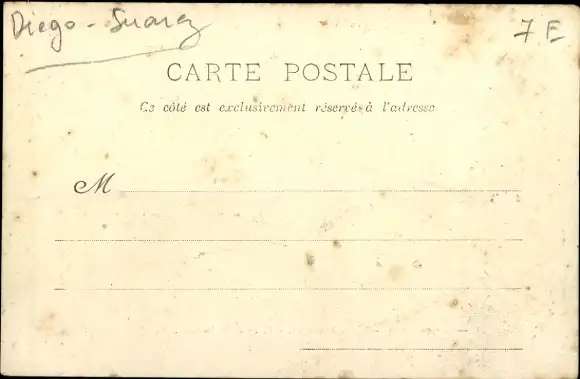 Diego - Suarez
7 E
CARTE POSTALE
Ce côté est exclusivement réservé à l'adresse
M